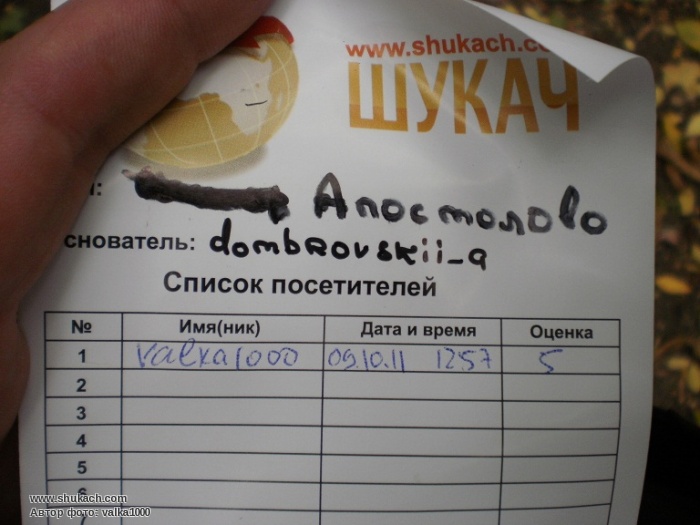 www.shukach.co
ШУКАЧ
Апостолово
снователь: dombrovskii_a
Список посетителей
№ Имя(ник) Дата и время Оценка
1 valka1000 09.10.11 12:57 5
2
3
4
5
6
7
www.shukach.com
Автор фото: valka1000